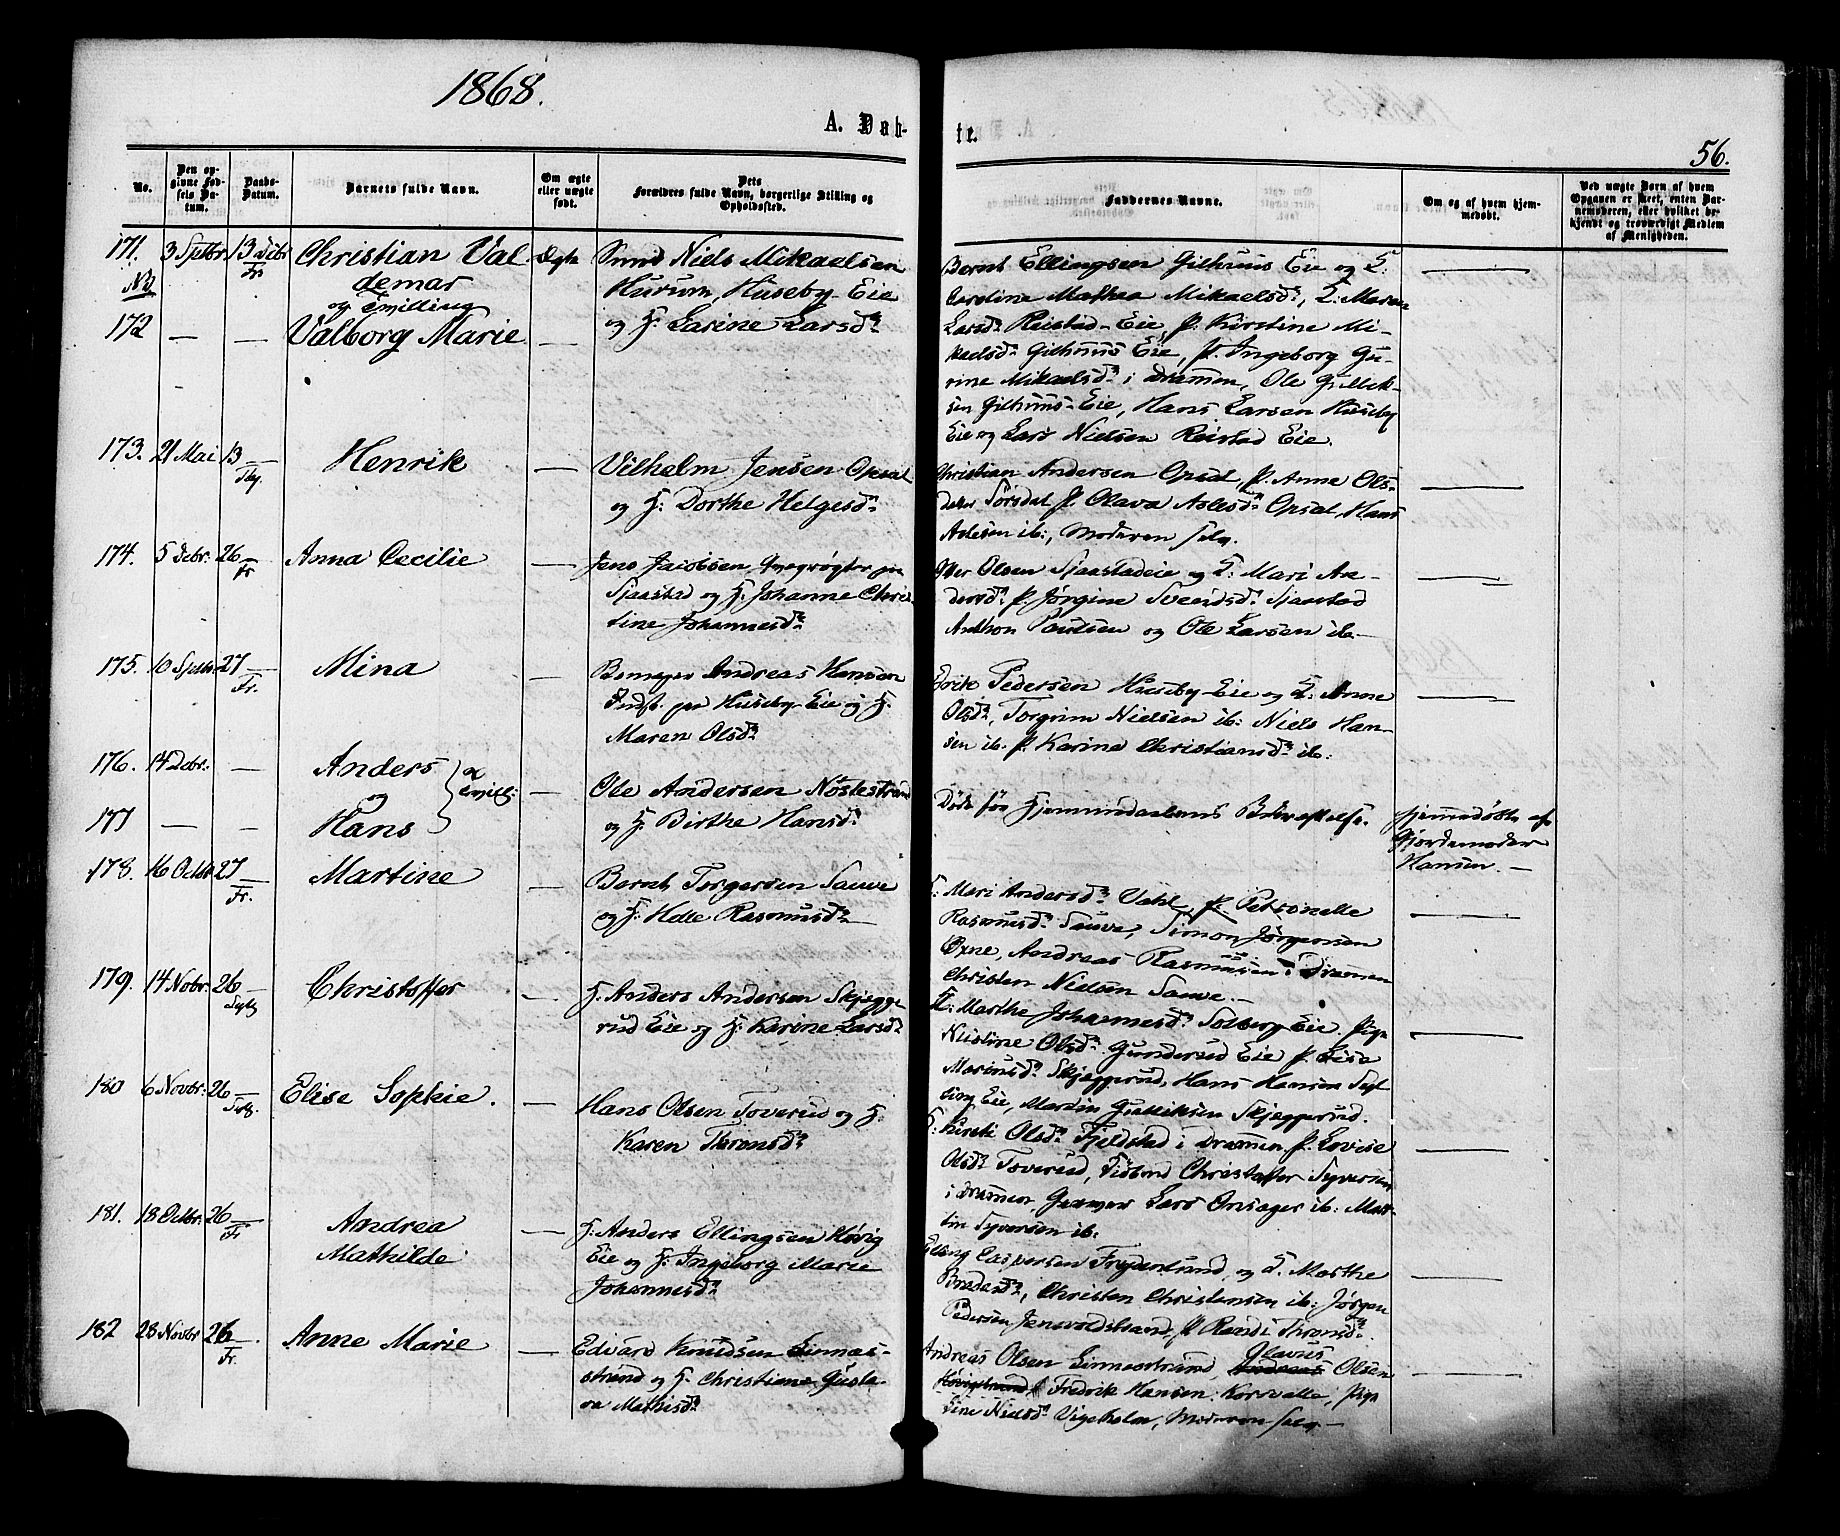 1868.
A. Døb-
te.
56.
No.
Den op-
givne Fød-
sels Da-
tum.
Daabs-
Datum.
Barnets fulde Navn.
Om ægte
eller uægte
født.
Dets
Forældres fulde Navn, borgerlige Stilling og
Opholdssted.
Faddernes Navne.
Om og af hvem hjem-
medøbt.
Ved uægte Børn af hvem
Opgaven er skeet, enten Bar-
nemoderen, eller hvilket be-
kjendt og troværdigt Medlem
af Menigheden.
171. 3 Sptbr 13 Debr Fr Christian Val
demar
og Tvilling
Ægte Smed Niels Mikaelsen
Hurum, Huseby-Eie
og H. Larine Larsdr
NB
172 — — Valborg Marie —
Bernt Ellingsen Gilhuus Eie og K:
Caroline Mathea Mikaelsdr, K: Maren
Larsdr Reistad-Eie, P. Kirstine Mi-
kaelsdr Gilhuus Eie, P. Ingeborg Gu-
rine Mikaelsdr i Drammen, Ole Gullik-
sen Gilhuus-Eie, Hans Larsen Huseby
Eie og Lars Nielsen Reistad Eie.
173. 21 Mai 13 — Henrik —
Vilhelm Jensen Opsal
og H: Dorthe Helgesdr
Christian Andersen Opsal, P. Anne Ols-
datter Sørsdal P. Olava Aslesdr Opsal, Hans
Aslesen ib:, Moderen selv.
174. 5 Debr. 26 Fr Anna Cecilie —
Jens Jacobsen, paa
Sjaastad og H: Johanne Chris-
tine Johannesdr
Iver Olsen Sjaastadeie og K: Mari An-
dersdr P. Jørgine Svendsdr Sjaastad
Anthon Paulsen og Ole Larsen ib—
175. 16 Sptbr 27 Fr. Mina —
Andreas Hansen
Inds. paa Huseby Eie og H.
Maren Olsdr
Erik Pedersen Huseby Eie og K: Anne
Olsdr, Torgrim Nielsen ib: Niels Han-
sen ib. P. Karine Christiansdr ib:
176. 14 Debr: — Anders
og
Tvill:
—
Ole Andersen Nøstestrand
og H: Birthe Hansdr
177 — — Hans
Døde før Hjemmedaabens Bekræftelse.
Hjemmedøbte af
Gjordemoder
Hansen. —
178. 16 Octbr 27 Fr. Martine —
Bernt Torgersen Sauve
og H: Helle Rasmusdr —
K: Mari Andersdr Dahl, P. Petronelle
Rasmusdr Sauve, Simon Jørgensen
Øxne, Andreas Rasmusen i Drammen
Christen Nielsen Sauve. —
179. 14 Nobr. 26 — Christoffer —
H. Anders Andersen Skjegge-
rud Eie og H: Karine Larsdr
K: Marthe Johannesdr Solberg Eie. Pige
Nicoline Olsdr Gunderud Eie P. Lise
Mariusdr Skjeggerud, Hans Hansen Syl-
ling Eie, Martin Gulliksen Skjeggerud.
180 6 Novbr. 26 Elise Sophie. —
Hans Olsen Toverud og H:
Karen Thronsdr
K: Kirsti Olsdr Fjeldstad i Drammen P. Lovise
Olsdr Toverud, Christoffer Syversen
i Drammen, Lars Onsager ib: Mar-
tin Syversen ib:
181. 18 Octbr: 26 Fr Andrea
Mathilde —
H. Anders Ellingsen Høvig
Eie og H: Ingeborg Marie
Johannesdr
Elling Caspersen og K. Marthe
Christen Christensen ib: Jørgen
Pedersen P. Randi Thronsdr.
182 28 Novbr 26 Fr. Anne Marie —
Edvard Knudsen Linnes-
strand og H. Christiane Gusta-
va Mathisdr
Andreas Olsen Linnesstrand, Olavus Olsen
Fredrik Hansen Korsvalle, Pige
Nielsdr Moderen selv —